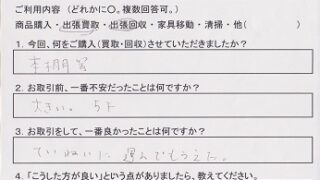 ご利用内容 (どれかに〇。複数回答可。)
商品購入・出張買取・出張回収・家具移動・清掃・他( )
1. 今回、何をご購入(買取・回収)させていただきましたか?
本棚等
2. お取引前、一番不安だったことは何ですか?
大きい。
3. お取引をして、一番良かったことは何ですか?
ていねいに運んでもらえた。
4.「こうした方が良い」という点がありましたら、教えてください。